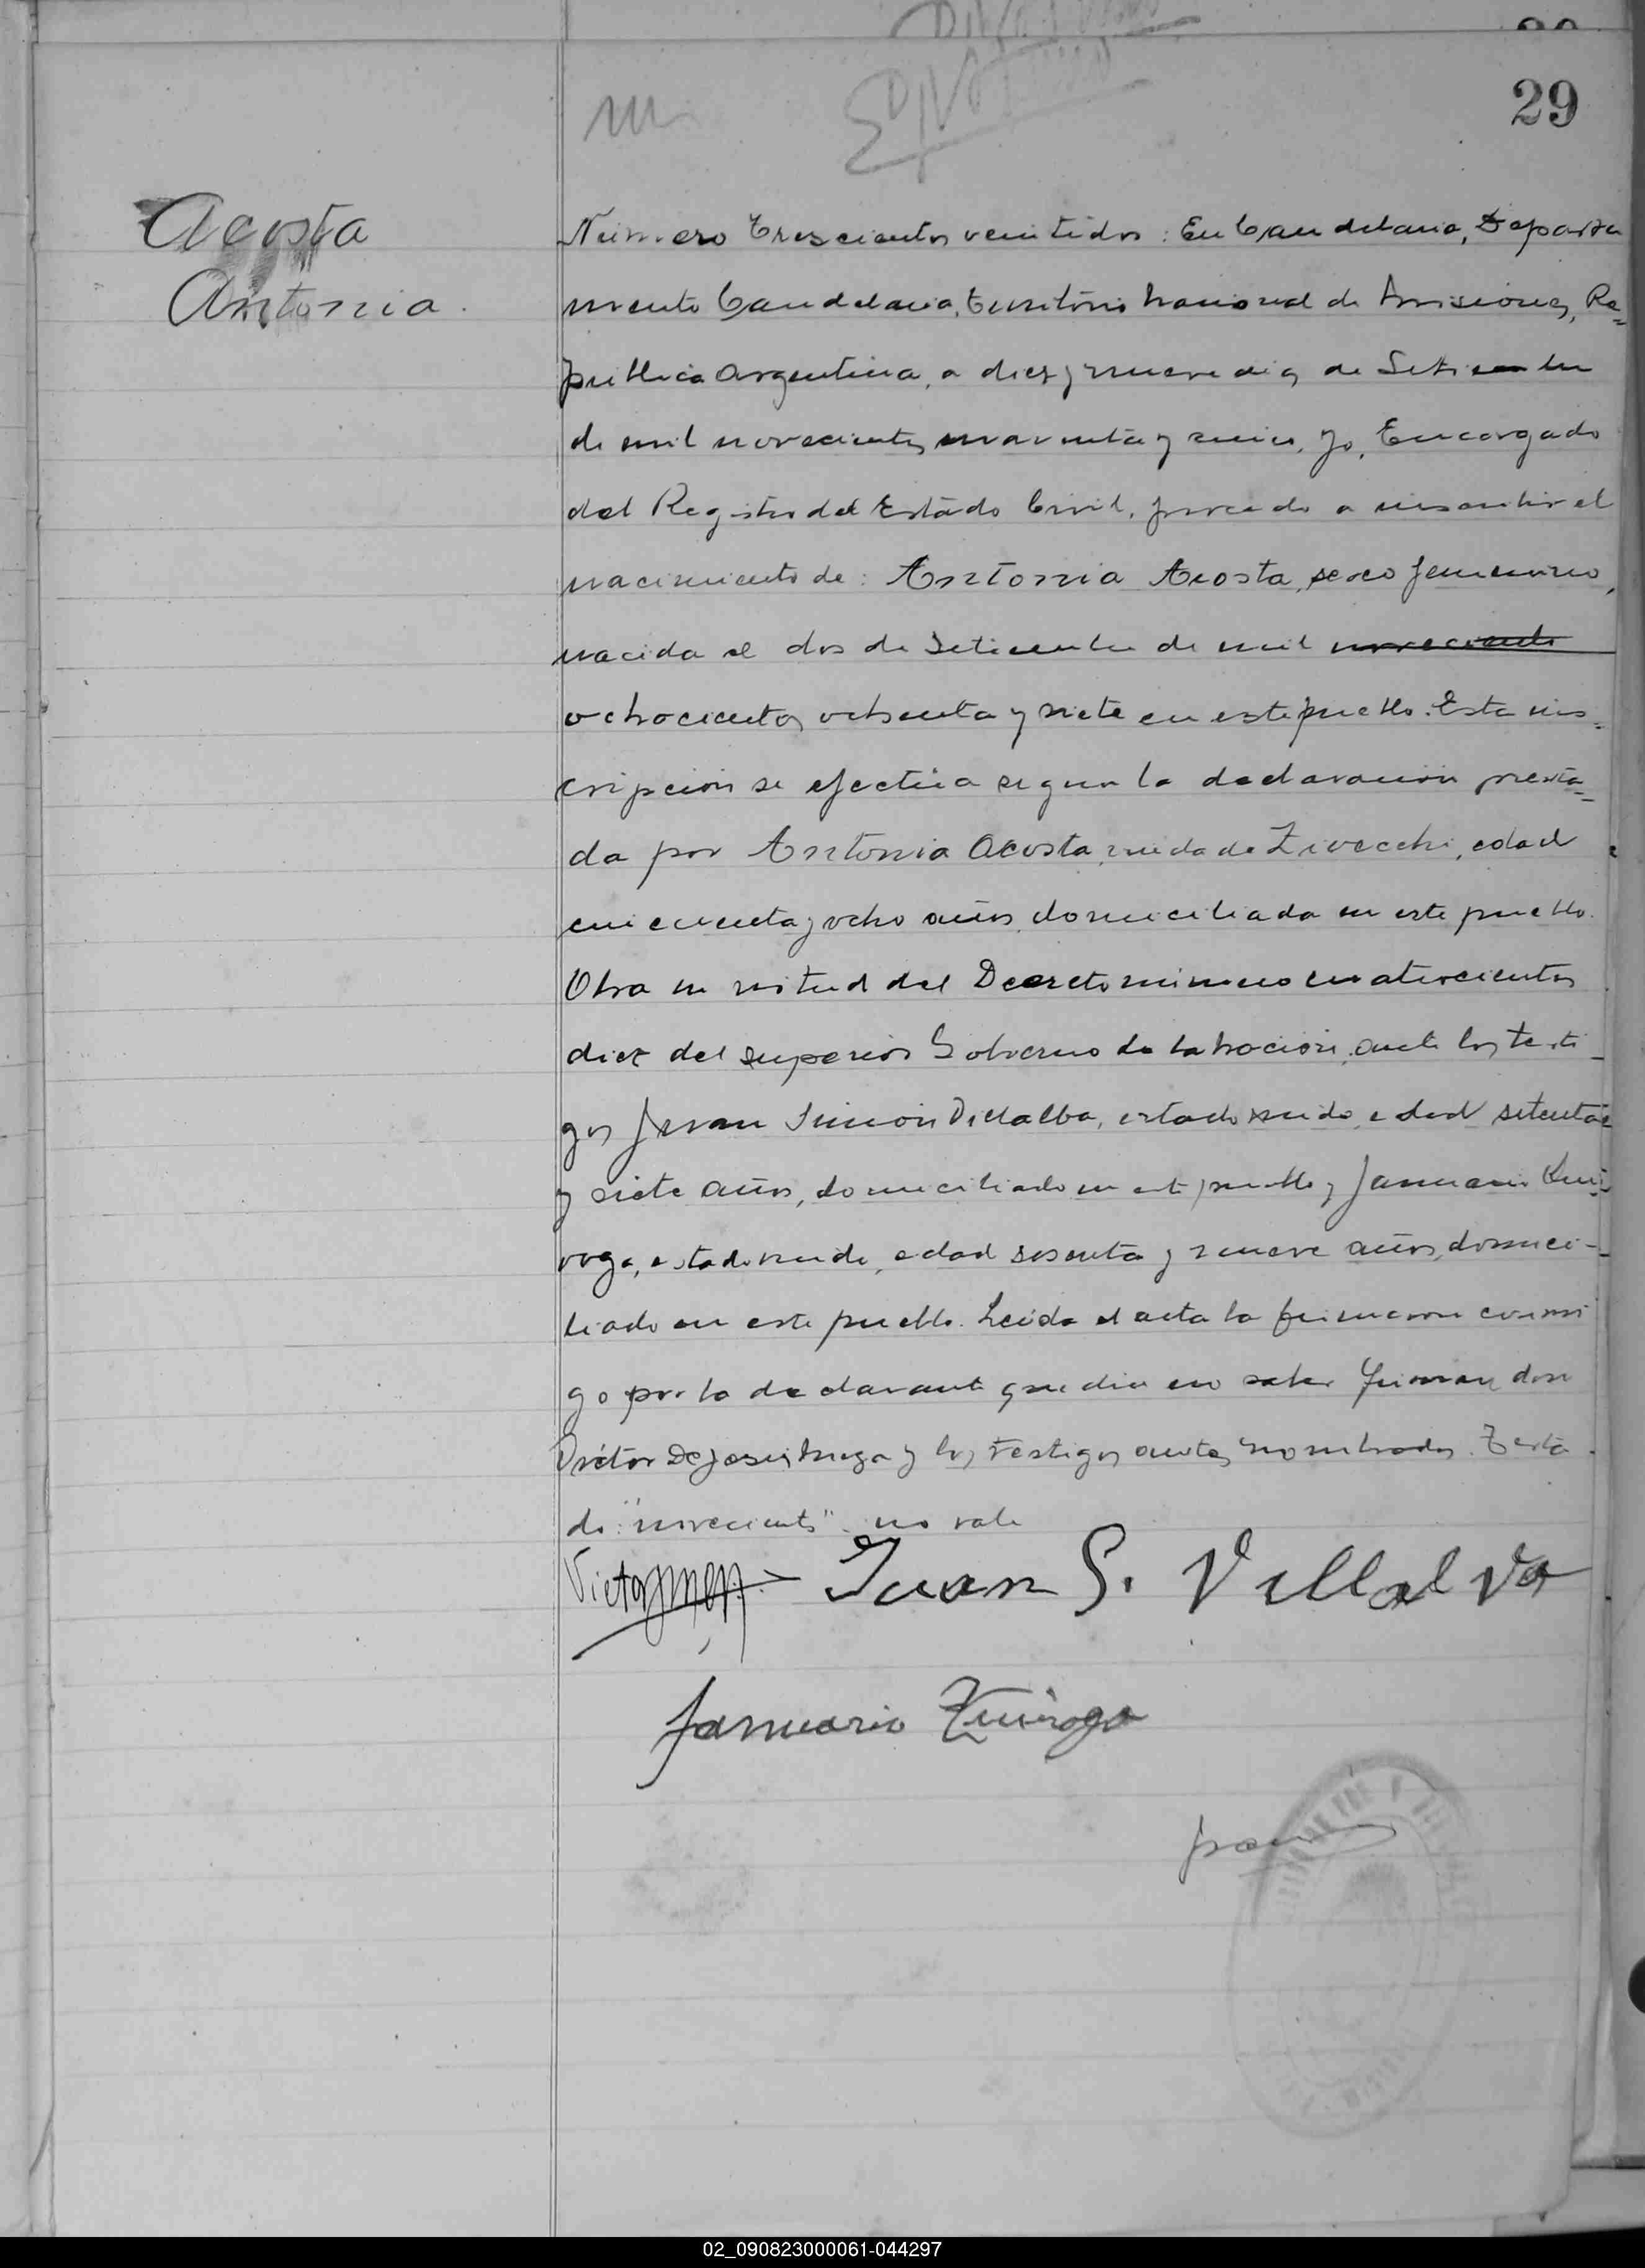 29
Acosta
Antonia.
Número Trescientos veintidos: En Candelaria, Departa
mento Candelaria, Territorio Nacional de Misiones, Re=
pública Argentina, a diez y nueve dias de Setiembre
de mil novecientos cuarenta y cinco, yo, Encargado
del Registro del Estado Civil, procedo a inscribir el
nacimiento de: Antonia Acosta, sexo femenino,
nacida el dos de Setiembre de mil novecientos
ochocientos ochenta y siete en este pueblo. Esta ins=
cripción se efectúa segun la declaración presta=
da por Antonia Acosta, viuda de edad
cincuenta y ocho años, domiciliada en este pueblo.
Obra en virtud del Decreto número cuatrocientos
diez del superior Gobierno de la Nación, ante los testi-
gos Juan Simón Villalba, estado viudo, edad setenta
y siete años, domiciliado en este pueblo y Januario Qui-
roga, estado viudo, edad sesenta y nueve años, domici-
liado en este pueblo. Leída el acta la firmaron conmi
go por la declarante que dice no saber firmar don
Victor De Jesus y los testigos antes nombrados. Testa
do: "novecientos" no vale
Juan S. Villalva
Januario Quiroga